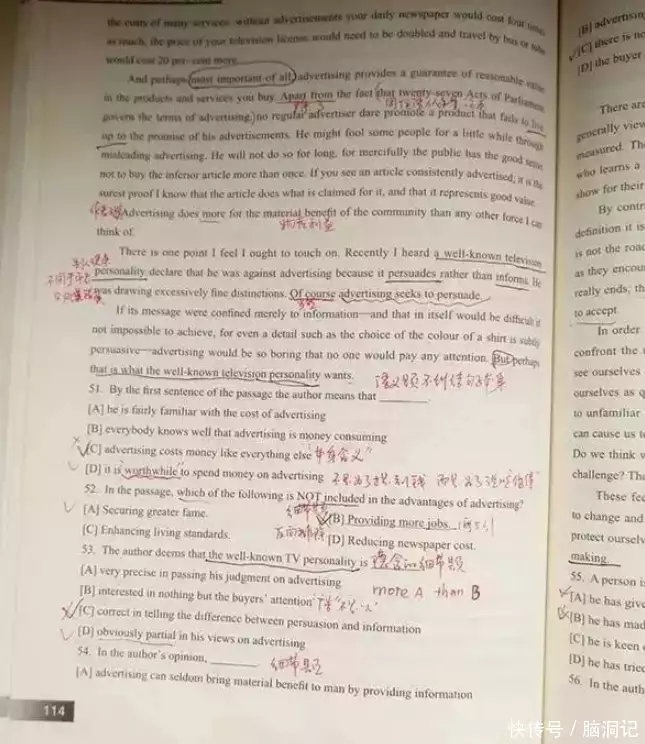 the costs of many services. without advertisements your daily newspaper would cost four times
as much, the price of your television license would need to be doubled and travel by bus or tube
would cost 20 per cent more.
And perhaps most important of all, advertising provides a guarantee of reasonable value
in the products and services you buy. Apart from the fact that twenty-seven Acts of Parliament
govern the terms of advertising, no regular advertiser dare promote a product that fails to live
up to the promise of his advertisements. He might fool some people for a little while through
misleading advertising. He will not do so for long, for mercifully the public has the good sense
not to buy the inferior article more than once. If you see an article consistently advertised, it is the
surest proof I know that the article does what is claimed for it, and that it represents good value.
Advertising does more for the material benefit of the community than any other force I can
物质利益
think of.
There is one point I feel I ought to touch on. Recently I heard a well-known television
personality declare that he was against advertising because it persuades rather than informs. He
was drawing excessively fine distinctions. Of course advertising seeks to persuade.
If its message were confined merely to information—and that in itself would be difficult if
not impossible to achieve, for even a detail such as the choice of the colour of a shirt is subtly
persuasive—advertising would be so boring that no one would pay any attention. But perhaps
that is what the well-known television personality wants.
51. By the first sentence of the passage the author means that
[A] he is fairly familiar with the cost of advertising
[B] everybody knows well that advertising is money consuming
[C] advertising costs money like everything else
[D] it is worthwhile to spend money on advertising
52. In the passage, which of the following is NOT included in the advantages of advertising?
[A] Securing greater fame. [B] Providing more jobs.
[C] Enhancing living standards. [D] Reducing newspaper cost.
53. The author deems that the well-known TV personality is
[A] very precise in passing his judgment on advertising
more A than B
[B] interested in nothing but the buyers' attention
[C] correct in telling the difference between persuasion and information
[D] obviously partial in his views on advertising
54. In the author's opinion,
细节题
[A] advertising can seldom bring material benefit to man by providing information
114
[B] advertisin
[C] there is no
[D] the buyer
There are
generally view
measured. Th
who learns a
show for their
By contr
definition it is
is not the road
as they encou
really ends, th
to accept
In order
confront the
see ourselves
ourselves as q
to unfamiliar
can cause us t
Do we think v
challenge? The
These fee
to change and
protect ourselv
making.
55. A person is
[A] he has give
[B] he has mad
[C] he is keen
[D] he has tried
56. In the auth
快传号/脑洞记